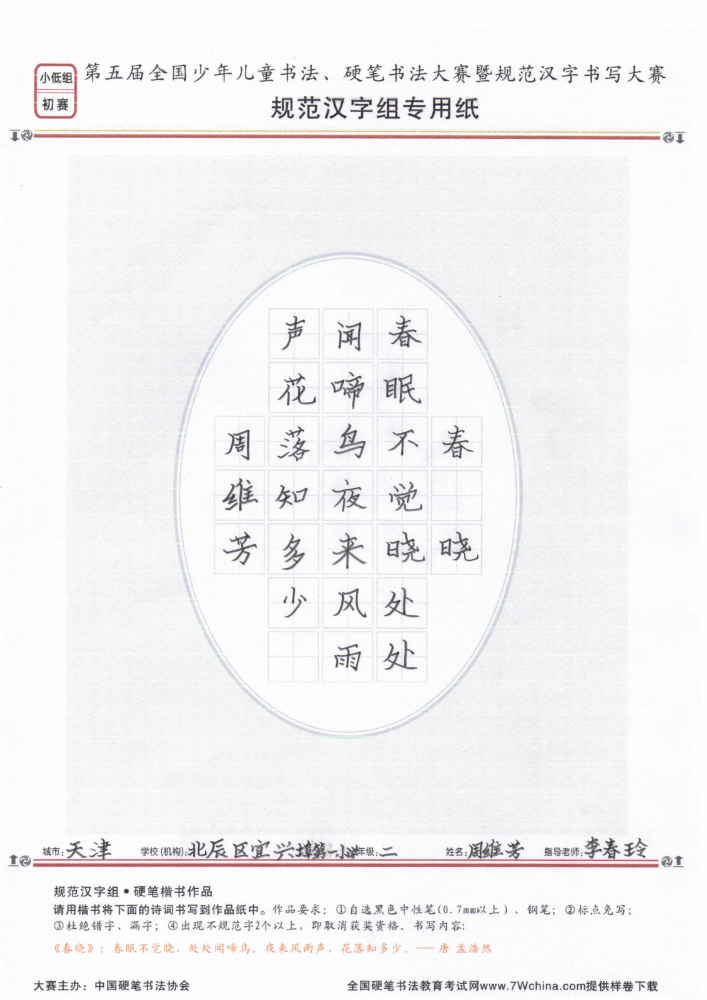 小低组
初赛
第五届全国少年儿童书法、硬笔书法大赛暨规范汉字书写大赛
规范汉字组专用纸
春晓
春眠不觉晓处处
闻啼鸟夜来风雨
声花落知多少
周维芳
城市：天津 学校(机构)：北辰区宜兴埠第一小学 年级：二 姓名：周维芳 指导老师：李春玲
规范汉字组•硬笔楷书作品
请用楷书将下面的诗词书写到作品纸中。作品要求：①自选黑色中性笔(0.7mm以上)、钢笔；②标点免写；
③杜绝错字、漏字；④出现不规范字2个以上，即取消获奖资格。书写内容：
《春晓》：春眠不觉晓，处处闻啼鸟。夜来风雨声，花落知多少。——唐 孟浩然
大赛主办：中国硬笔书法协会
全国硬笔书法教育考试网www.7Wchina.com提供样卷下载